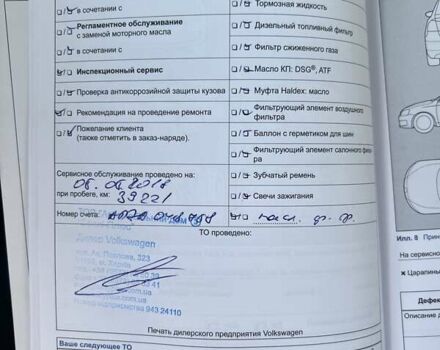 в сочетании с
Регламентное обслуживание
с заменой моторного масла
в сочетании с
Инспекционный сервис
Проверка антикоррозийной защиты кузова
Рекомендация на проведение ремонта
Пожелание клиента
(также отметить в заказ-наряде).
Сервисное обслуживание проведено на:
при пробеге, км: 39221
Номер счета:
Тормозная жидкость
Дизельный топливный фильтр
Фильтр сжиженного газа
Масло КП: DSG®, ATF
Муфта Haldex: масло
Фильтрующий элемент воздушного
фильтра
Баллон с герметиком для шин
Фильтрующий элемент салонного фильт-
ра
Зубчатый ремень
Свечи зажигания
ТО проведено:
Дилер Volkswagen
943 24110
Печать дилерского предприятия Volkswagen
Ваше следующее ТО
Илл. 8
На сервисно
Царапины
Дефек
Описание д